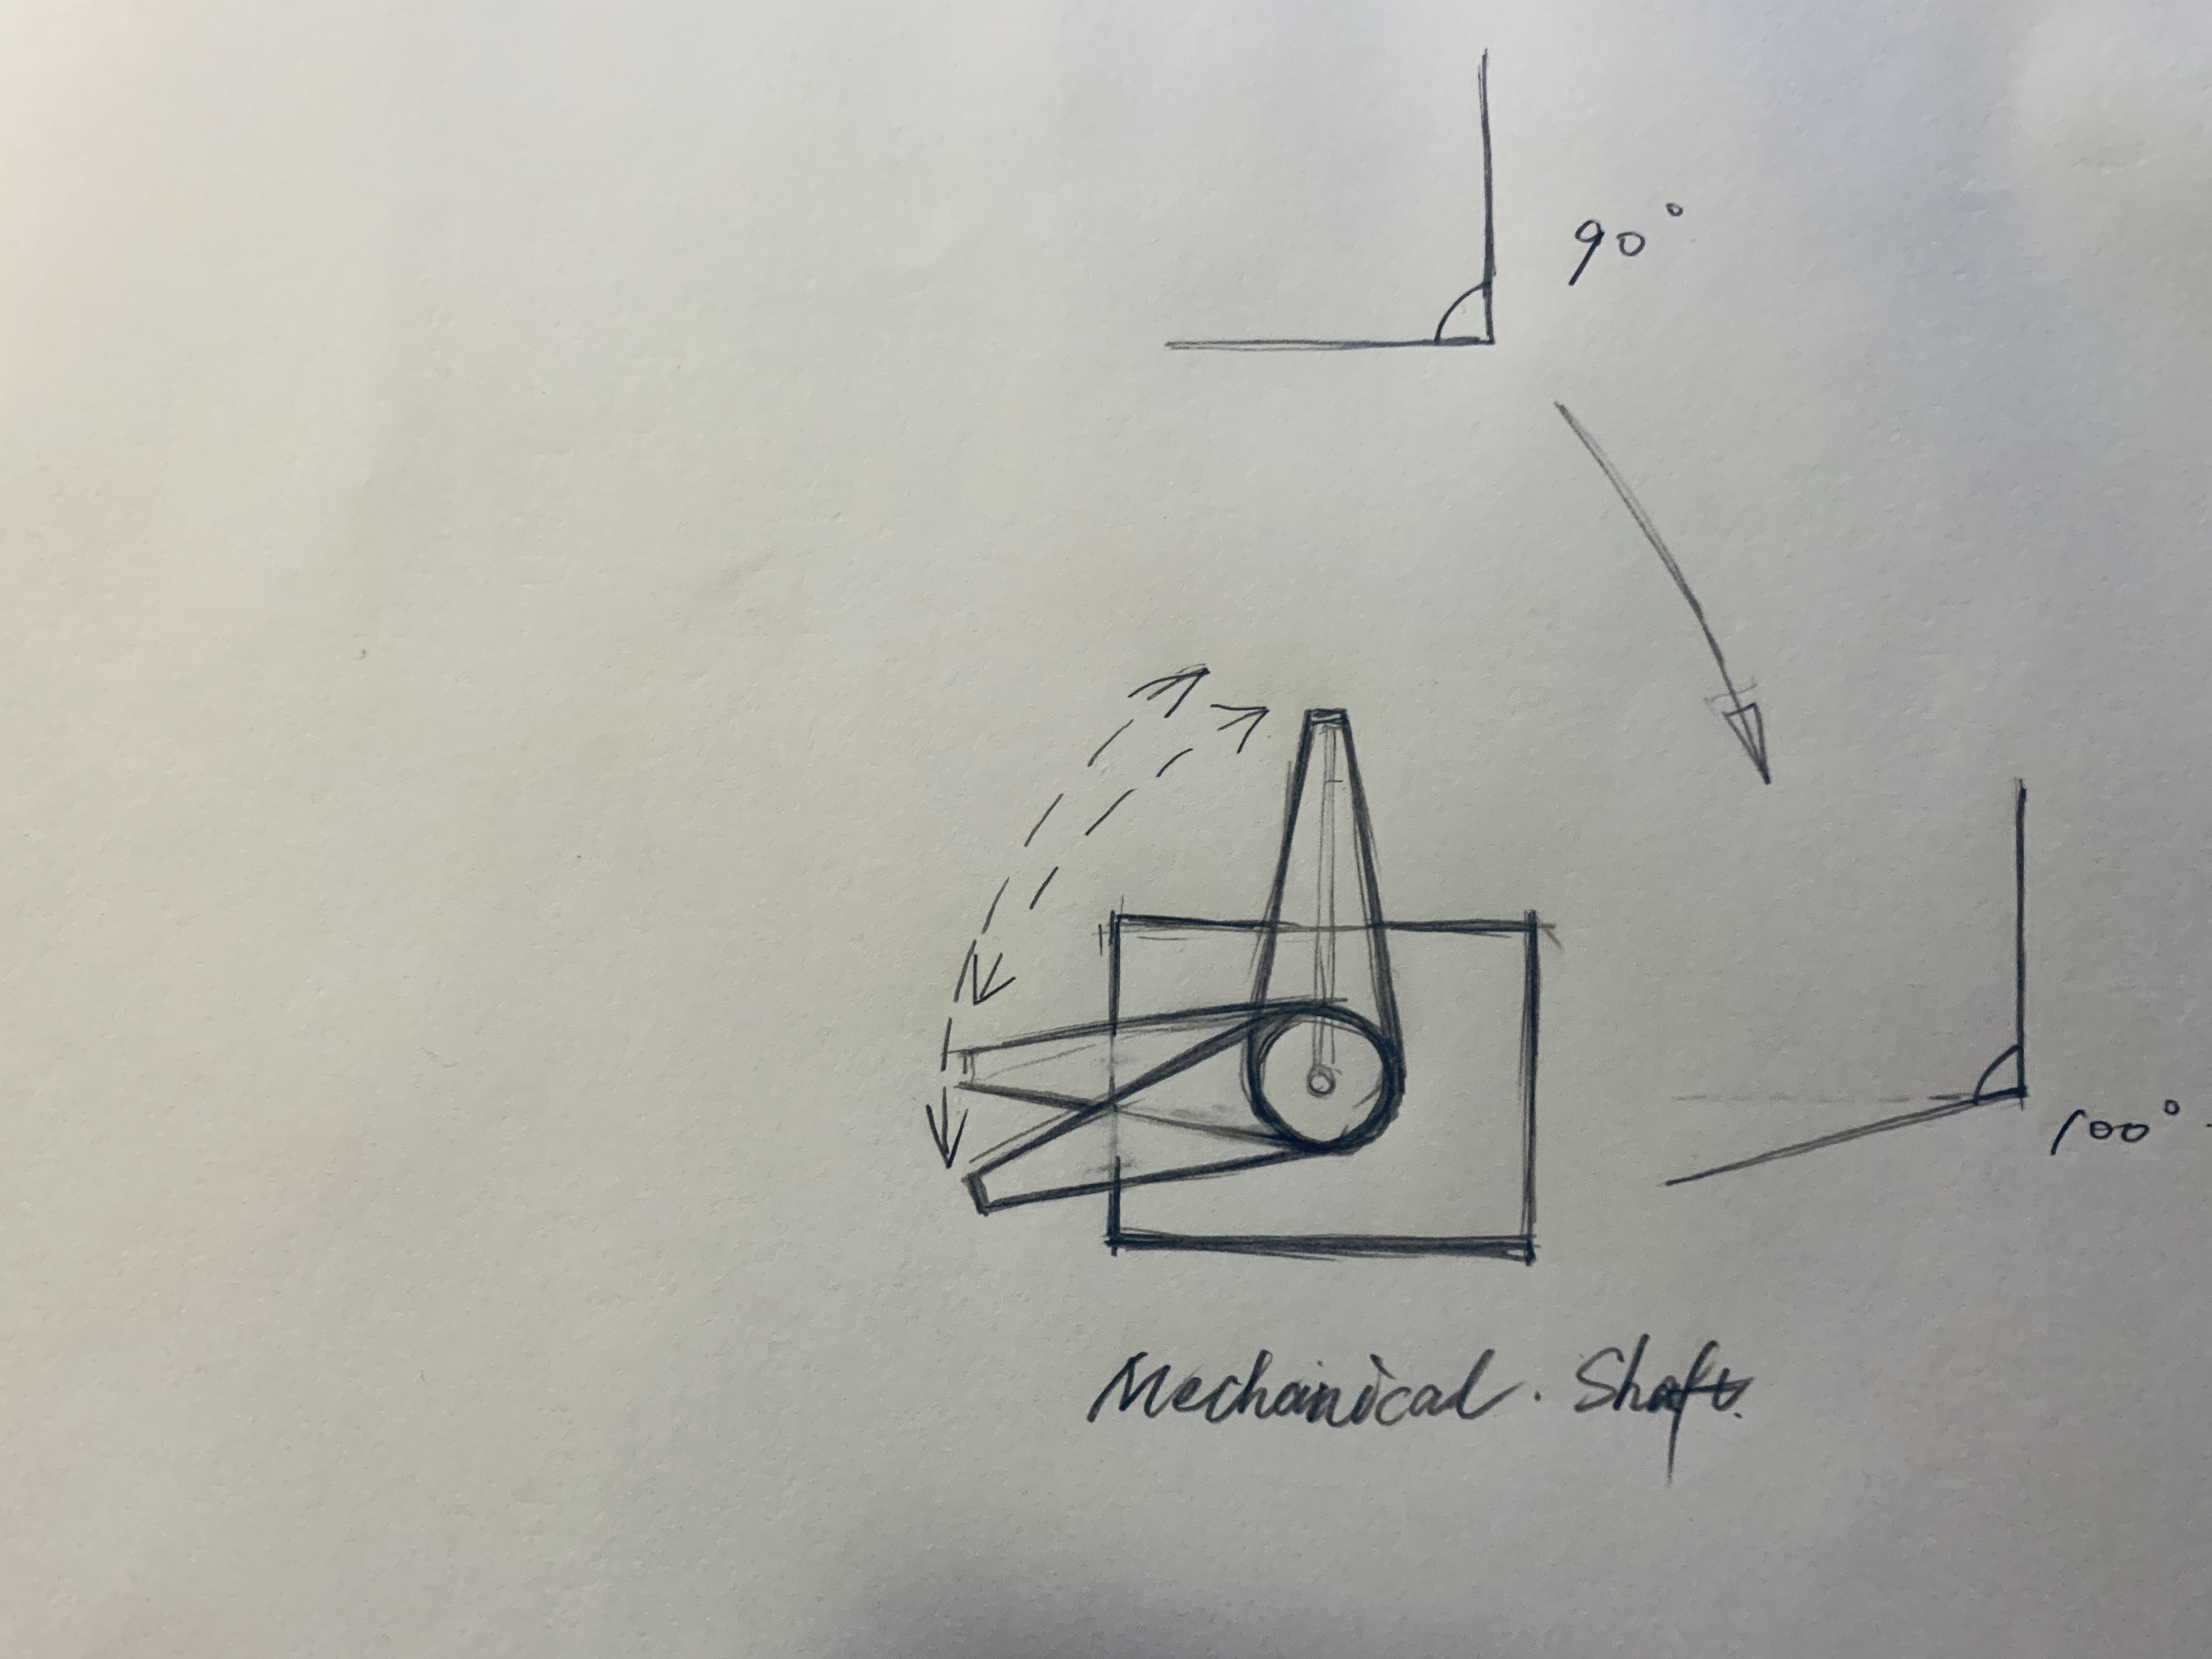 90°
100°
Mechanical. Shaft.